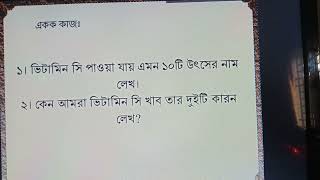 একক কাজঃ
১। ভিটামিন সি পাওয়া যায় এমন ১০টি উৎসের নাম
লেখ।
২। কেন আমরা ভিটামিন সি খাব তার দুইটি কারন
লেখ?